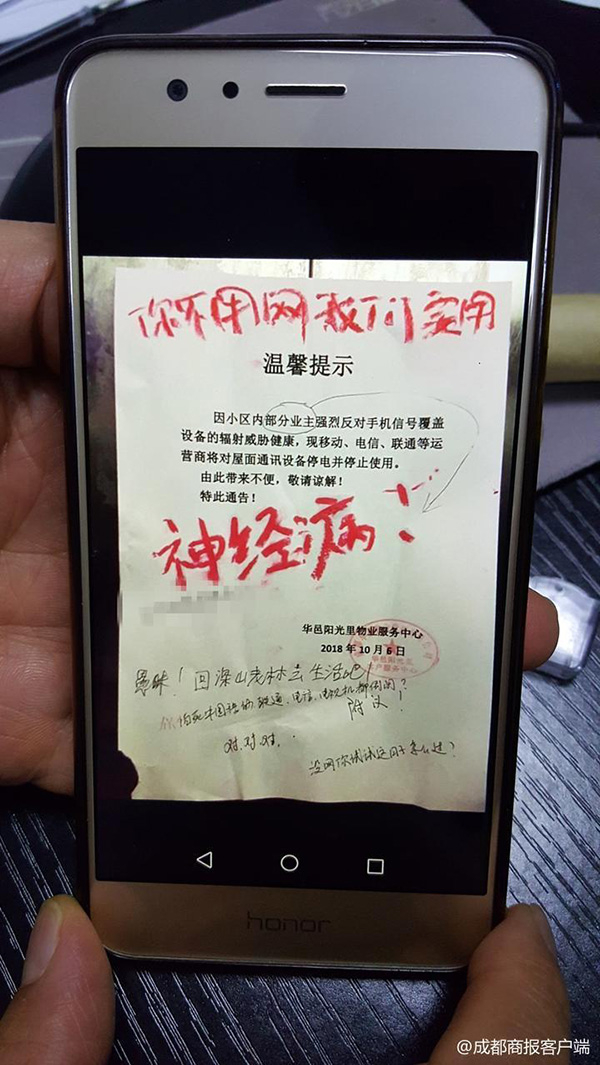 你不用网我们要用
温馨提示
因小区内部分业主强烈反对手机信号覆盖
设备的辐射威胁健康，现移动、电信、联通等运
营商将对屋面通讯设备停电并停止使用。
由此带来不便，敬请谅解！
特此通告！
神经病！
华邑阳光里物业服务中心
2018年10月6日
愚昧！回深山老林去生活吧！
附议！
对.对.对.
没网你试试这日子怎么过？
honor
@成都商报客户端